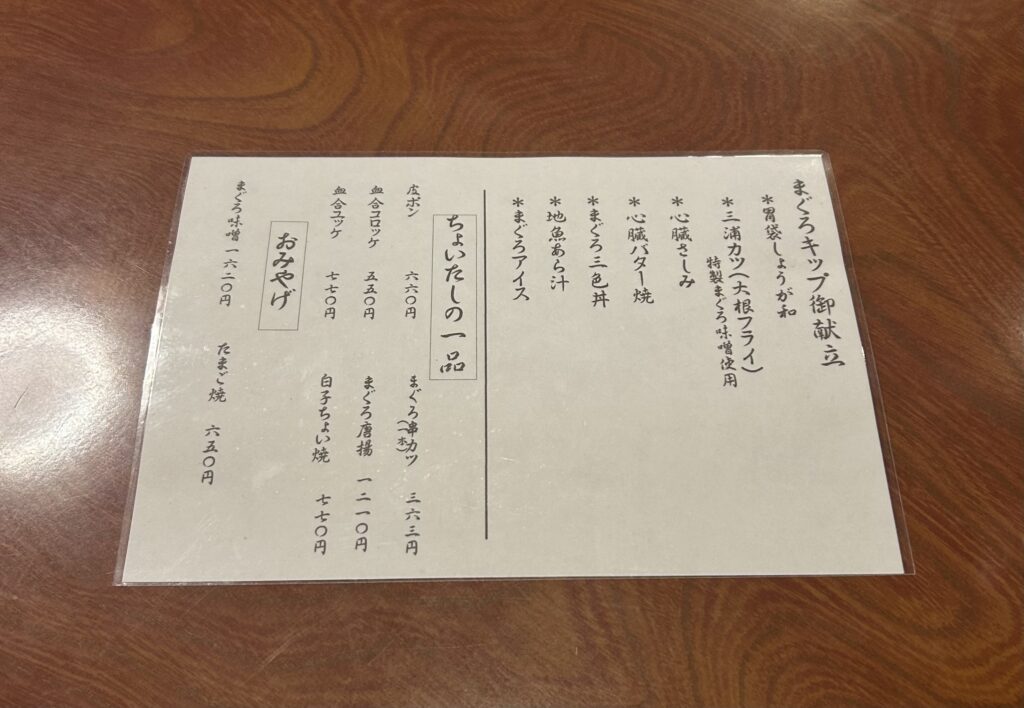 まぐろキップ御献立
＊胃袋しょうが和
＊三浦カツ(大根フライ)
特製まぐろ味噌使用
＊心臓さしみ
＊心臓バター焼
＊まぐろ三色丼
＊地魚あら汁
＊まぐろアイス
ちょいたしの一品
皮ポン 六六〇円
血合コロッケ 五五〇円
血合ユッケ 七七〇円
まぐろ串カツ 三六三円
(一本)
まぐろ唐揚 一二一〇円
白子ちょい焼 七七〇円
おみやげ
まぐろ味噌 一六二〇円
たまご焼 六五〇円